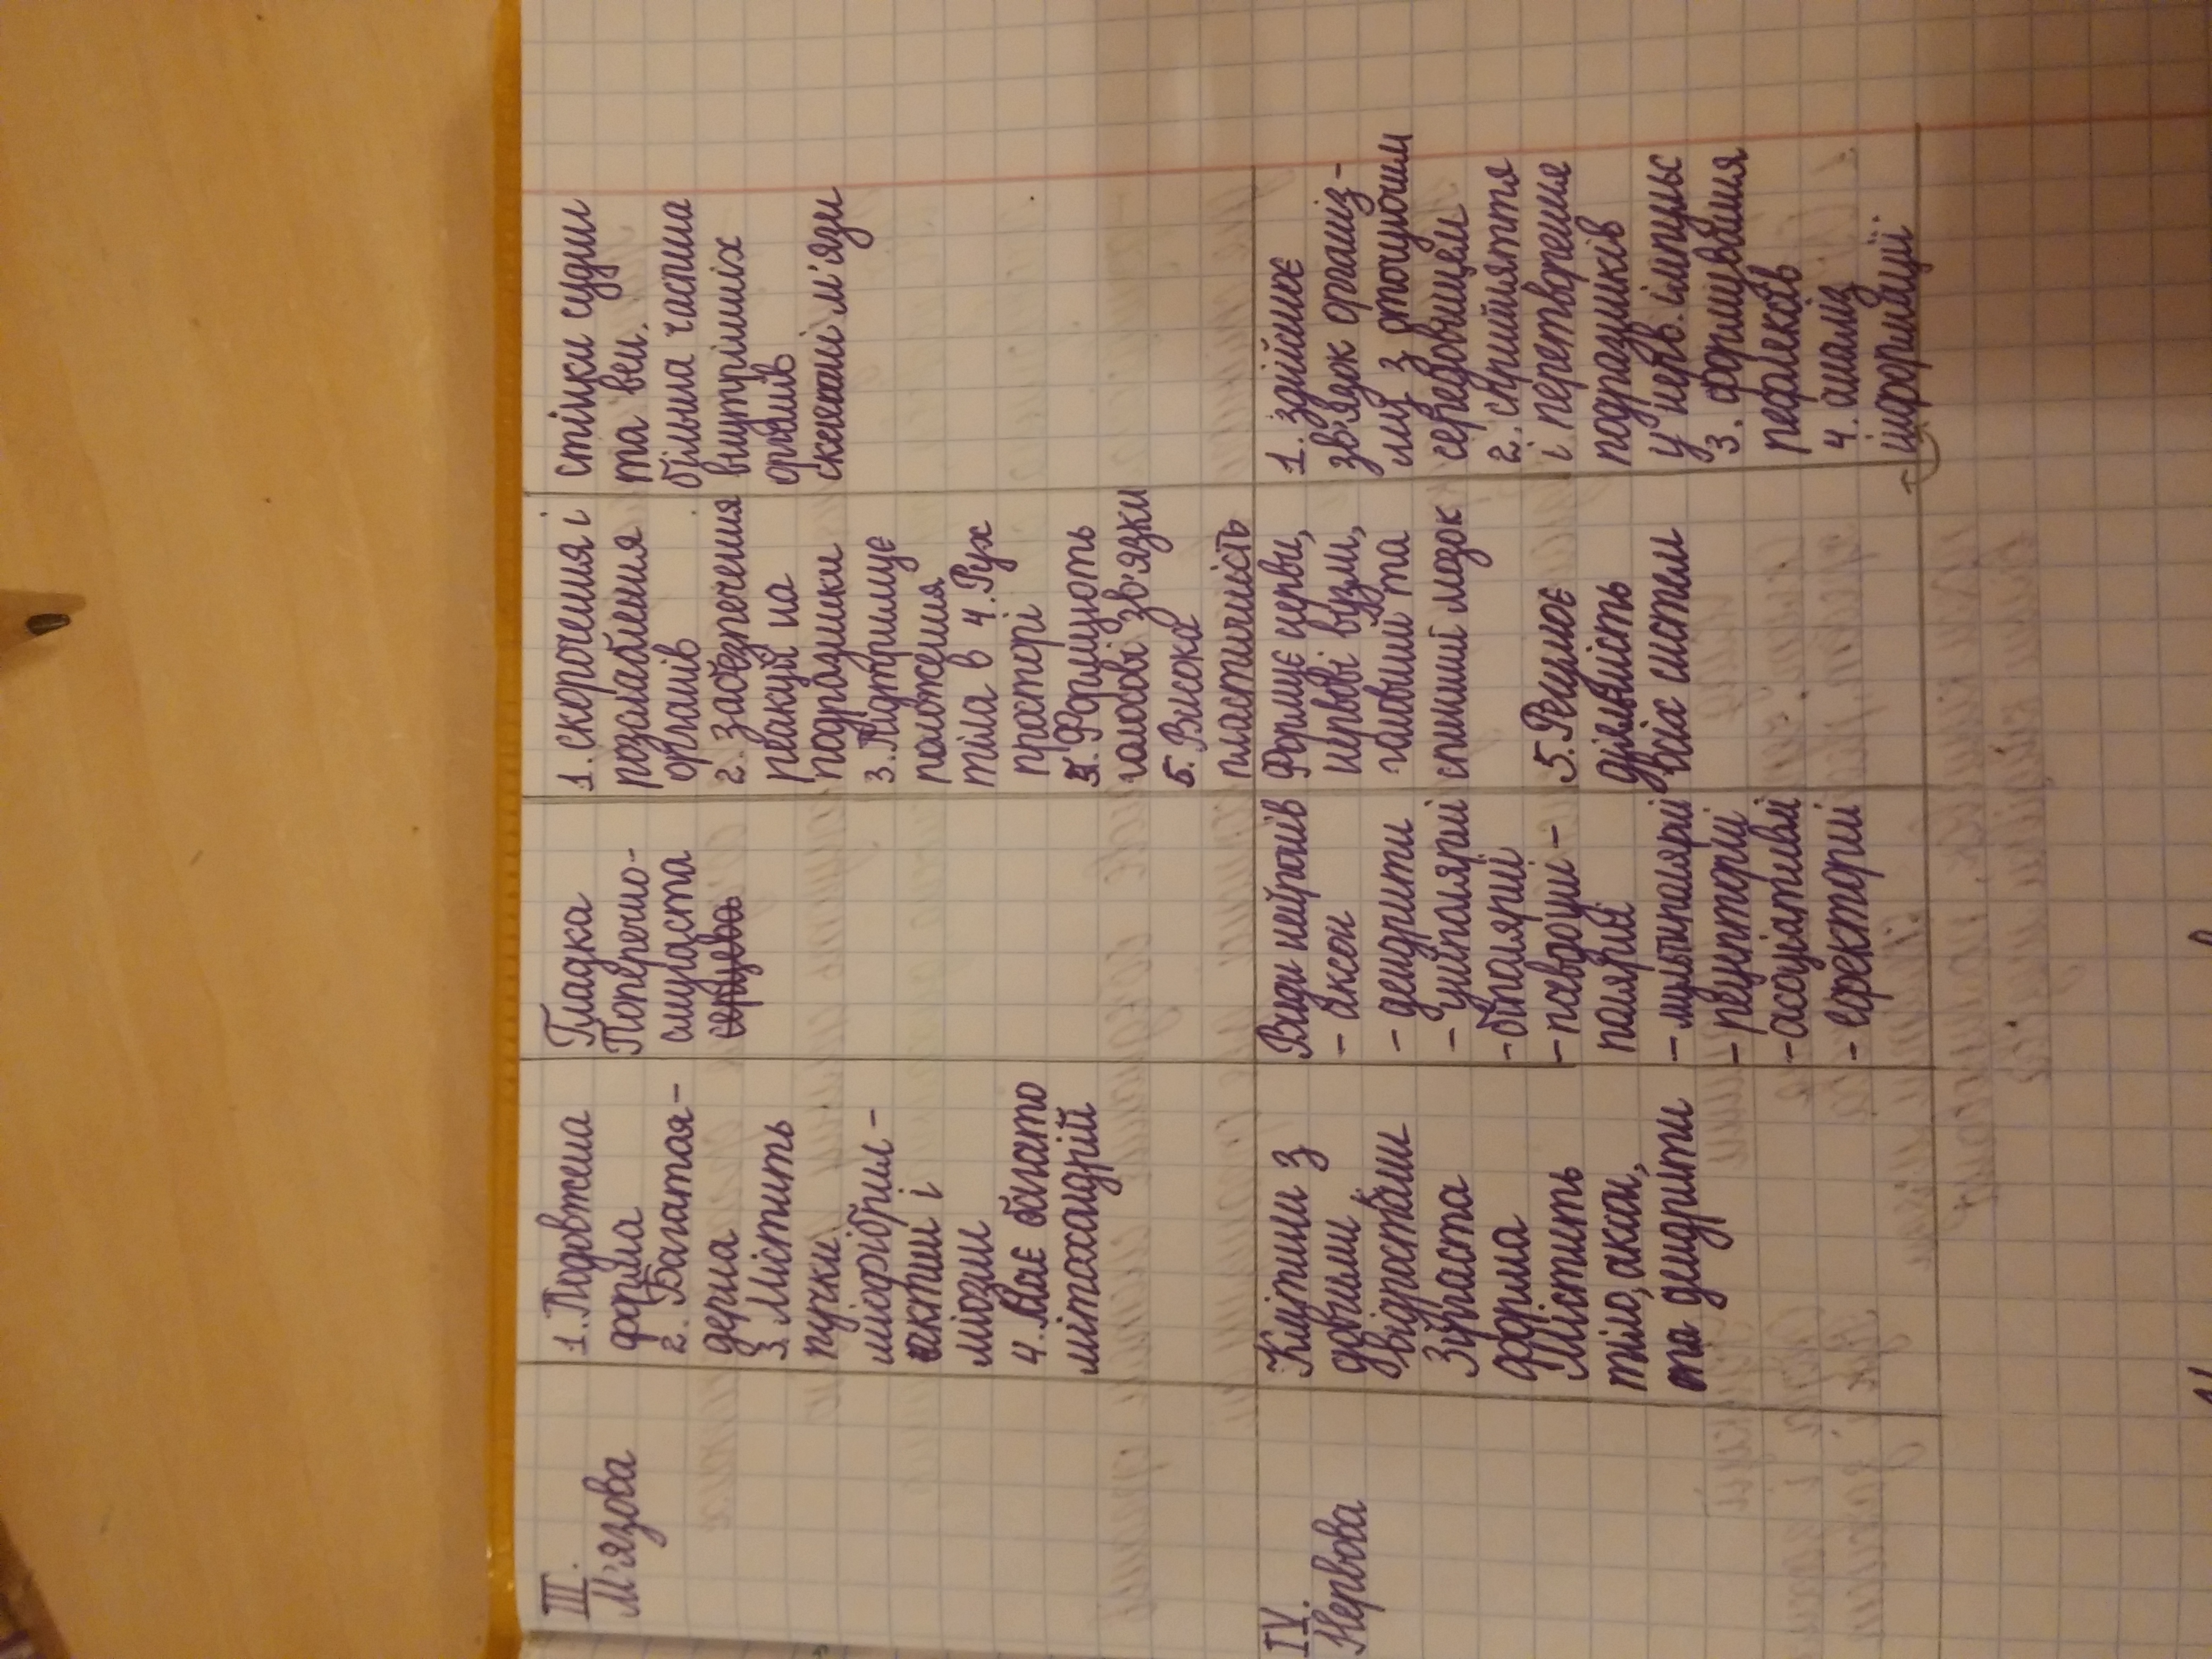 III.
М'язова
1. Подовжена
форма
2. Багатоя-
дерна
3. Містить
пучки
міофібрил -
актин і
міозин
4. Має багато
мітохондрій
Гладка
Поперечно-
смугаста
серцева
1. скорочення і
розслаблення
органів
2. забезпечення
реакції на
подразники
3. Підтримує
положення
тіла в 4. Рух
просторі
4. Формують
голосові зв'язки
5. Висока
пластичність
стінки судин
та вен.
більша частина
внутрішніх
органів
скелетні м'язи
IV.
Нервова
Клітини з
довгими
відростками
Зірчаста
форма
Містить
тіло, аксон,
та дендрити
Види нейронів
- аксон
- дендрити
- уніполярні
- біполярні
- псевдоуні-
полярні
- мультиполярні
- рецепторні
- асоціативні
- ефекторні
Формує нерви,
нервові вузли,
головний та
спинний мозок
5. Регулює
діяльність
всіх систем
1. здійснює
зв'язок організ-
му з оточуючим
середовищем
2. сприйняття
і перетворення
подразників
у нерв. імпульс
3. формування
рефлексів
4. аналіз
інформації